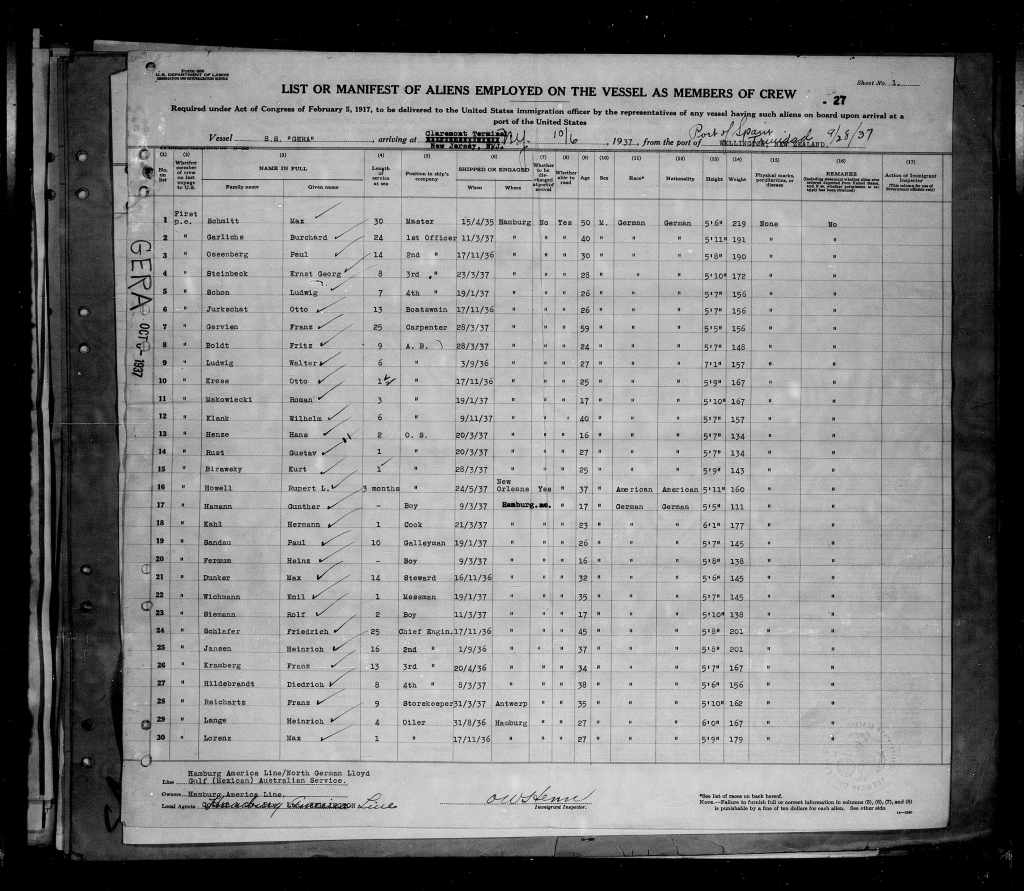 FORM 689
U.S. DEPARTMENT OF LABOR
IMMIGRATION AND NATURALIZATION SERVICE
Sheet No. 1.
LIST OR MANIFEST OF ALIENS EMPLOYED ON THE VESSEL AS MEMBERS OF CREW
27
Required under Act of Congress of February 5, 1917, to be delivered to the United States immigration officer by the representatives of any vessel having such aliens on board upon arrival at a
port of the United States
Vessel S.S. "GERA", arriving at Claremont Terminal New Jersey, N.Y. 10/6, 1937, from the port of WELLINGTON, NEW ZEALAND. Port of Spain Trinidad 9/28/37
(1) (2) (3) (4) (5) (6) (7) (8) (9) (10) (11) (12) (13) (14) (15) (16) (17)
No. on list Whether member of crew on last voyage to U.S. NAME IN FULL Family name Given name Length of service at sea Position in ship's company SHIPPED OR ENGAGED When Where Whether to be discharged at port of arrival Whether able to read Age Sex Race* Nationality Height Weight Physical marks, peculiarities, or disease REMARKS Action of Immigrant Inspector
1 First p.c. Schmitt Max 30 Master 15/4/35 Hamburg No Yes 50 M. German German 5'6" 219 None No
2 " Garlichs Burchard 24 1st Officer 11/3/37 " " " 40 " " " 5'11" 191 " "
3 " Ossenberg Paul 14 2nd " 17/11/36 " " " 30 " " " 5'8" 190 " "
4 " Steinbeck Ernst Georg 8 3rd " 23/3/37 " " " 28 " " " 5'10" 172 " "
5 " Schon Ludwig 7 4th " 19/1/37 " " " 26 " " " 5'7" 156 " "
6 " Jurkschat Otto 13 Boatswain 17/11/36 " " " 26 " " " 5'7" 156 " "
7 " Gervien Franz 25 Carpenter 28/3/37 " " " 59 " " " 5'5" 156 " "
8 " Boldt Fritz 9 A. B. 28/3/37 " " " 24 " " " 5'7" 148 " "
9 " Ludwig Walter 6 " 3/9/36 " " " 27 " " " 7'1" 157 " "
10 " Kross Otto 1 " 17/11/36 " " " 25 " " " 5'9" 167 " "
11 " Makowiecki Roman 3 " 19/1/37 " " " 17 " " " 5'10" 167 " "
12 " Klank Wilhelm 6 " 9/11/37 " " " 40 " " " 5'7" 157 " "
13 " Henze Hans 2 O. S. 20/3/37 " " " 16 " " " 5'7" 134 " "
14 " Rust Gustav 1 " 20/3/37 " " " 27 " " " 5'7" 134 " "
15 " Birawsky Kurt 1 " 28/3/37 " " " 25 " " " 5'9" 143 " "
16 " Howell Rupert L. 3 months " 24/5/37 New Orleans Yes " 37 " American American 5'11" 160 " "
17 " Hamann Gunther - Boy 9/3/37 Hamburg. no. " 17 " German German 5'5" 111 " "
18 " Kahl Hermann 1 Cook 21/3/37 " " " 23 " " " 6'1" 177 " "
19 " Sandau Paul 10 Galleyman 19/1/37 " " " 26 " " " 5'7" 145 " "
20 " Fermum Heinz - Boy 9/3/37 " " " 16 " " " 5'8" 138 " "
21 " Dunker Max 14 Steward 16/11/36 " " " 32 " " " 5'6" 145 " "
22 " Wichmann Emil 1 Messman 19/1/37 " " " 35 " " " 5'7" 145 " "
23 " Siemann Rolf 2 Boy 11/3/37 " " " 17 " " " 5'10" 138 " "
24 " Schlafer Friedrich 25 Chief Engin. 17/11/36 " " " 45 " " " 5'8" 201 " "
25 " Jansen Heinrich 16 2nd " 1/9/36 " " " 37 " " " 5'8" 201 " "
26 " Kramberg Franz 13 3rd " 20/4/36 " " " 34 " " " 5'7" 167 " "
27 " Hildebrandt Diedrich 8 4th " 8/3/37 " " " 38 " " " 5'6" 156 " "
28 " Reichartz Franz 9 Storekeeper 31/3/37 Antwerp " " 35 " " " 5'10" 162 " "
29 " Lange Heinrich 4 Oiler 31/8/36 Hamburg " " 27 " " " 6'0" 167 " "
30 " Lorenz Max 1 " 17/11/36 " " " 27 " " " 5'9" 179 " "
GERA OCT 5-1937
Hamburg America Line/North German Lloyd
Line Gulf (Mexican) Australian Service.
Owners Hamburg America Line.
Local Agents Hamburg American Line
Immigrant Inspector.
*See list of races on back hereof.
NOTE.—Failure to furnish full or correct information in columns (5), (6), (7), and (8)
is punishable by a fine of ten dollars for each alien. See other side.